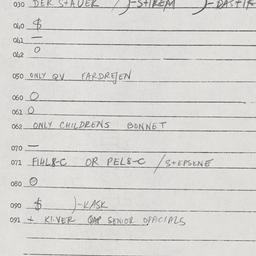 030 DER STAUER / )-STIREM )-DASTIK
040 $
041 —
042 O
050 ONLY QV FARDREJEN
060 O
061 O
062 ONLY CHILDRENS BONNET
070 —
071 FIHLS-C OR PELS-C / STEPSENE
080 O
090 $ )-KASK
091 + KI-VER SENIOR OFFICIALS